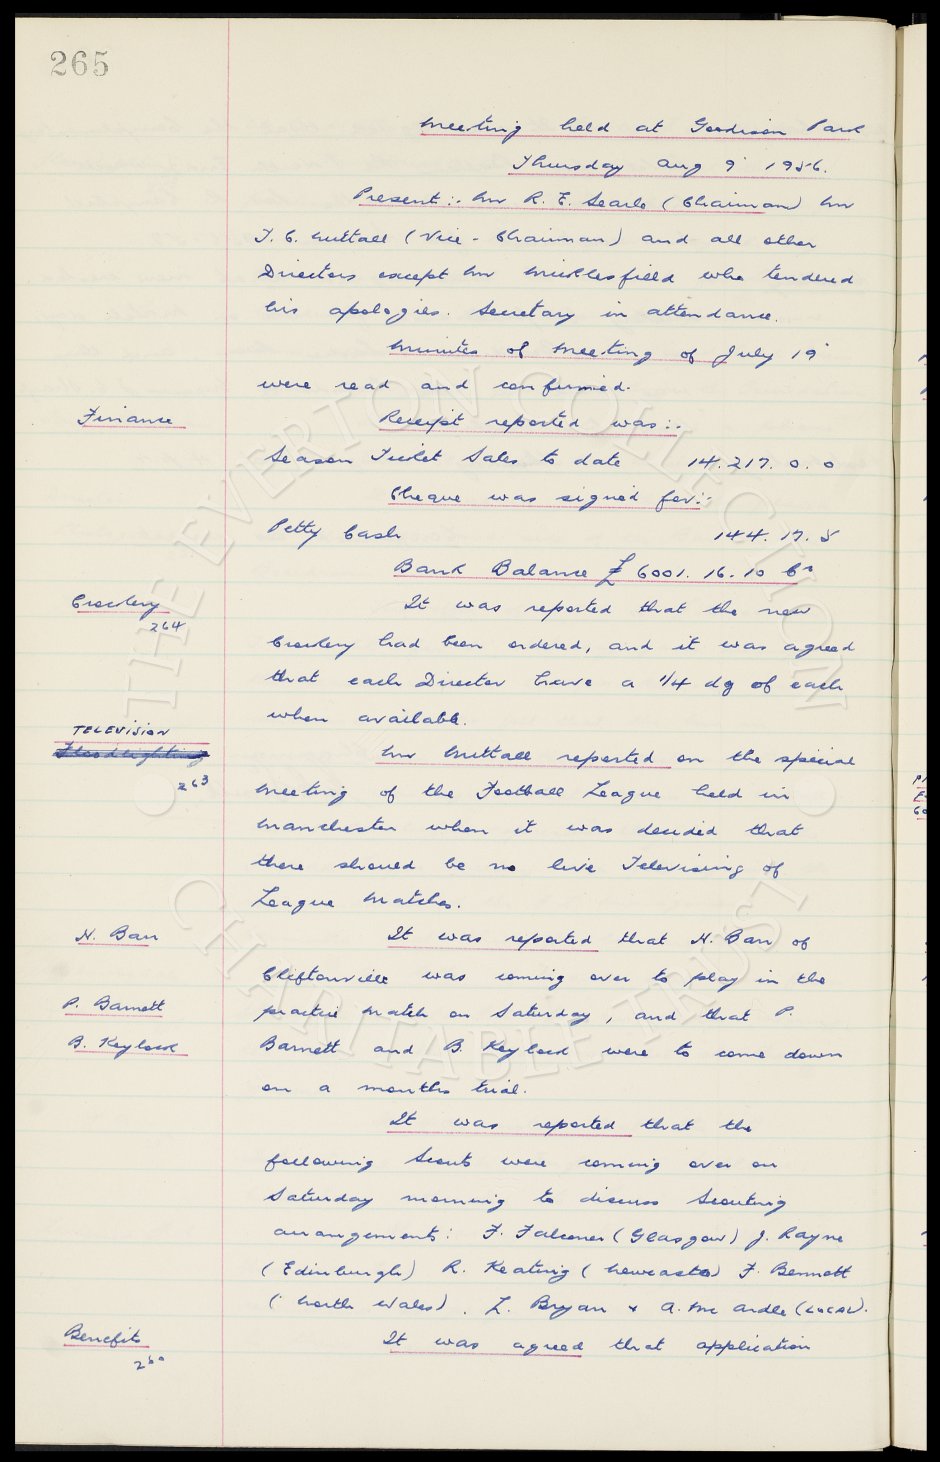 265
Meeting held at Goodison Park
Thursday Aug 9' 1956.
Present:- Mr R. E. Searle (Chairman) Mr
T. C. Nuttall (Vice-Chairman) and all other
Directors except Mr Micklesfield who tendered
his apologies. Secretary in attendance.
Minutes of Meeting of July 19'
were read and confirmed.
Finance
Receipt reported was:-
Season Ticket Sales to date 14.217. 0. 0
Cheque was signed for:-
Petty Cash 144. 17. 5
Bank Balance £6001. 16. 10 Cr
Crockery
264
It was reported that the new
Crockery had been ordered, and it was agreed
that each Director have a 1/4 dz of each
when available.
TELEVISION
Floodlighting
263
Mr Nuttall reported on the special
Meeting of the Football League held in
Manchester when it was decided that
there should be no live Televising of
League Matches.
H. Barr
It was reported that H. Barr of
Cliftonville was coming over to play in the
P. Barnett
practice match on Saturday, and that P.
B. Keylock
Barnett and B. Keylock were to come down
on a months trial.
It was reported that the
following Scouts were coming over on
Saturday morning to discuss Scouting
arrangements: F. Falconer (Glasgow) J. Rayne
(Edinburgh) R. Keating (Newcastle) F. Bennett
(North Wales). L. Bryan & A. McArdle (LOCAL).
Benefits
260
It was agreed that application
THE EVERTON COLLECTION
CHARITABLE TRUST